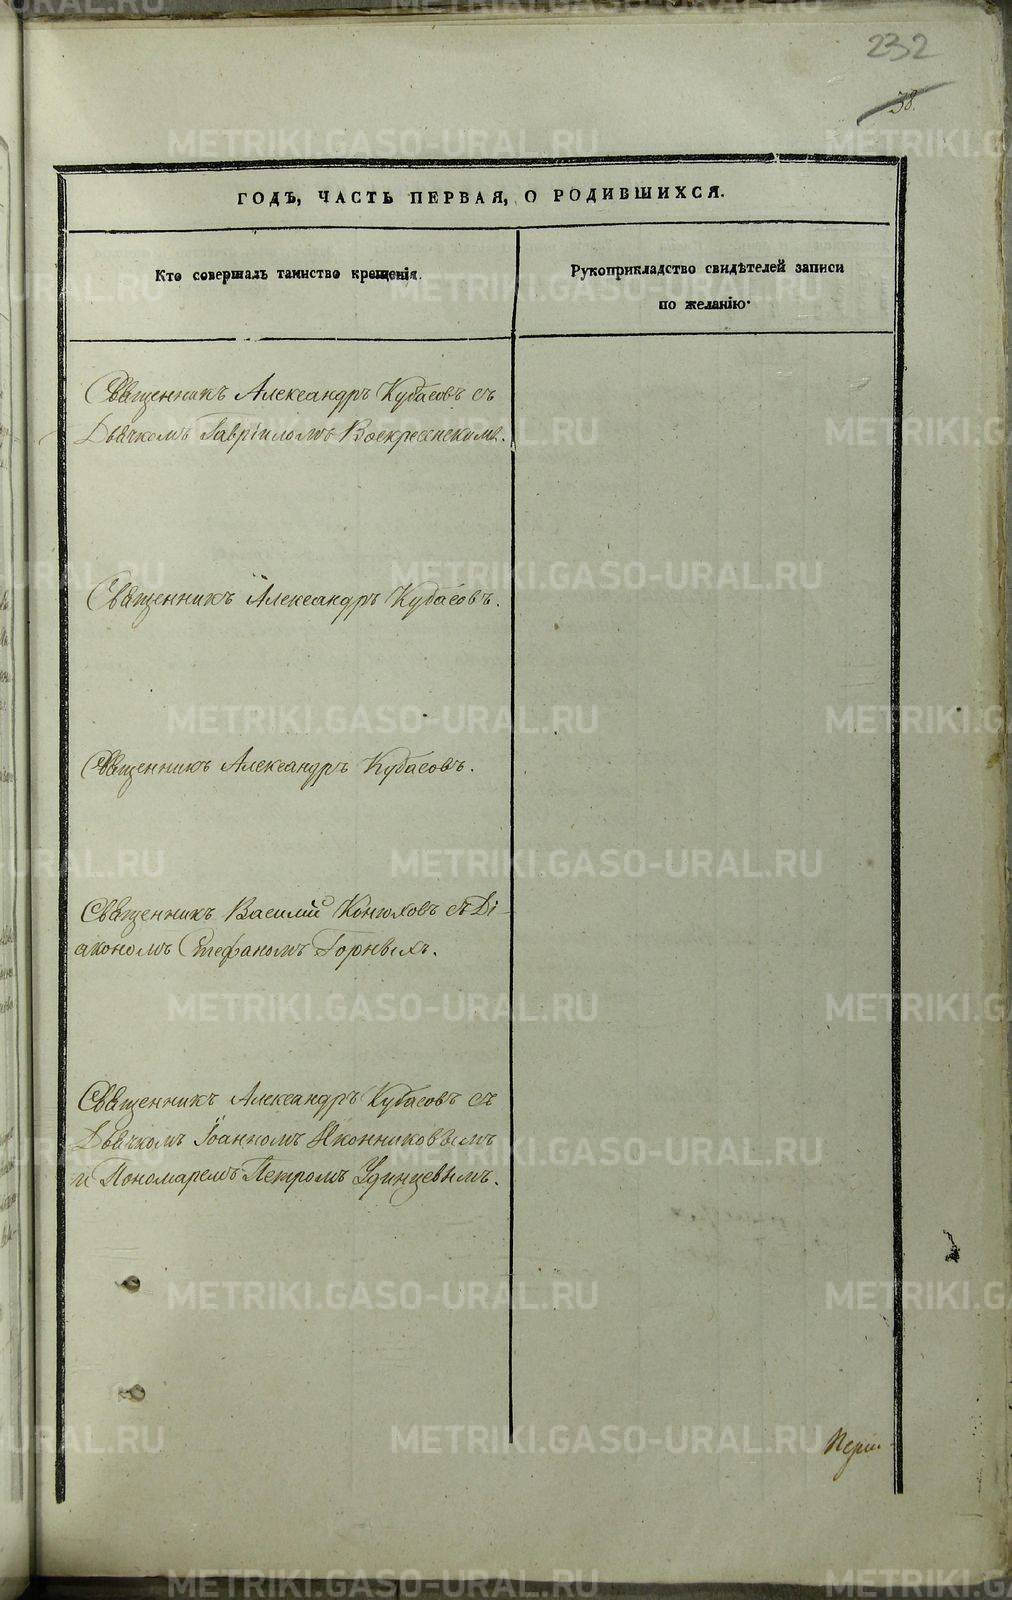 232
38.
ГОДЪ, ЧАСТЬ ПЕРВАЯ, О РОДИВШИХСЯ.
Кто совершалъ таинство крещенія.
Рукоприкладство свидѣтелей записи
по желанію.
Священникъ Александръ Кубасовъ съ
Дьячкомъ Гавріиломъ Воскресенскимъ.
Священникъ Александръ Кубасовъ.
Священникъ Александръ Кубасовъ.
Священникъ Василій Конюховъ съ Ді-
акономъ Стефаномъ Горныхъ.
Священникъ Александръ Кубасовъ съ
Дьячкомъ Іоанномъ Иконниковымъ
и Пономаремъ Петромъ Удинцевымъ.
METRIKI.GASO-URAL.RU